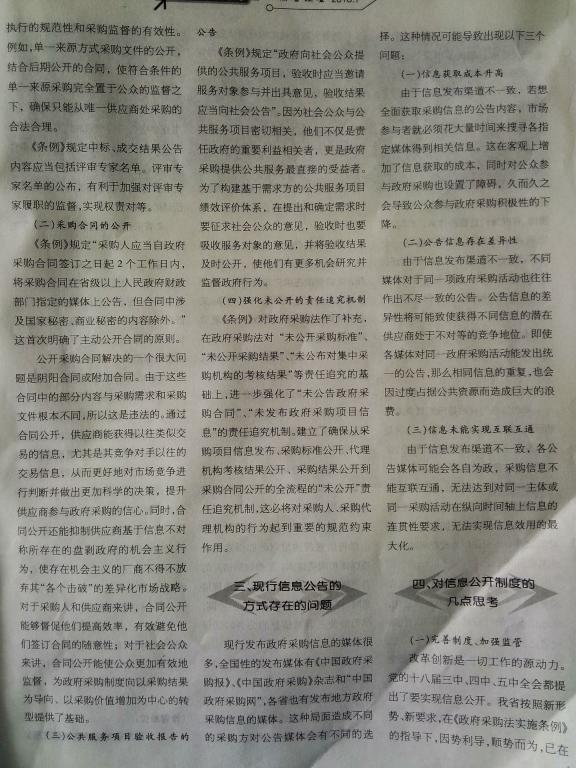 执行的规范性和采购监督的有效性。
例如,单一来源方式采购文件的公开,
结合后期公开的合同，使符合条件的
单一来源采购完全置于公众的监督之
下，确保只能从唯一供应商处采购的
合法合理。
《条例》规定中标、成交结果公告
内容应当包括评审专家名单。评审专
家名单的公布，有利于加强对评审专
家履职的监督,实现权责对等。
(二)采购合同的公开
《条例》规定“采购人应当自政府
采购合同签订之日起2个工作日内，
将采购合同在省级以上人民政府财政
部门指定的媒体上公告，但合同中涉
及国家秘密、商业秘密的内容除外。”
这首次明确了主动公开合同的原则。
公开采购合同解决的一个很大问
题是阴阳合同或附加合同。由于这些
合同中的部分内容与采购需求和采购
文件根本不同,所以这是违法的。通过
合同公开，供应商能获得以往类似交
易的信息，尤其是其竞争对手以往的
交易信息，从而更好地对市场竞争进
行判断并做出更加科学的决策，提升
供应商参与政府采购的信心。同时,合
同公开还能抑制供应商基于信息不对
称所存在的盘剥政府的机会主义行
为，使存在机会主义的厂商不得不放
弃其“各个击破”的差异化市场战略。
对于采购人和供应商来讲，合同公开
能够督促他们提高效率，有效避免他
们签订合同的随意性；对于社会公众
来讲，合同公开能使公众更加有效地
监督，为政府采购制度向以采购结果
为导向、以采购价值增加为中心的转
型提供了基础。
(三)公共服务项目验收报告的
公告
《条例》规定“政府向社会公众提
供的公共服务项目，验收时应当邀请
服务对象参与并出具意见，验收结果
应当向社会公告”。因为社会公众与公
共服务项目密切相关，他们不仅是责
任政府的重要利益相关者，更是政府
采购提供公共服务最直接的受益者。
为了构建基于需求方的公共服务项目
绩效评价体系，在提出和确定需求时
要征求社会公众的意见，验收时也要
吸收服务对象的意见，并将验收结果
及时公开，使他们有更多机会研究并
监督政府行为。
(四)强化未公开的责任追究机制
《条例》对政府采购法作了补充，
在政府采购法对“未公开采购标准”、
“未公开采购结果”、“未公布对集中采
购机构的考核结果”等责任追究的基
础上,进一步强化了“未公告政府采
购合同”、“未发布政府采购项目信
息”的责任追究机制。建立了确保从采
购项目信息发布、采购标准公开、代理
机构考核结果公开、采购结果公开到
采购合同公开的全流程的“未公开”责
任追究机制,这必将对采购人、采购代
理机构的行为起到重要的规范约束
作用。
三、现行信息公告的
方式存在的问题
现行发布政府采购信息的媒体很
多,全国性的发布媒体有《中国政府采
购报》、《中国政府采购》杂志和“中国
政府采购网”,各省也有发布地方政府
采购信息的媒体。这种局面造成不同
的采购方对公告媒体会有不同的选
择。这种情况可能导致出现以下三个
问题：
(一)信息获取成本升高
由于信息发布渠道不一致，若想
全面获取采购信息的公告内容，市场
参与者就必须花大量时间来搜寻各指
定媒体得到相关信息。这在客观上增
加了信息获取的成本，同时对公众参
与政府采购也设置了障碍，久而久之
会导致公众参与政府采购积极性的下
降。
(二)公告信息存在差异性
由于信息发布渠道不一致，不同
媒体对于同一项政府采购活动也往往
作出不尽一致的公告。公告信息的差
异性将可能致使获得不同信息的潜在
供应商处于不对等的竞争地位。即使
各媒体对同一政府采购活动能发出统
一的公告,那么相同信息的重复,也会
因过度占据公共资源而造成巨大的浪
费。
(三)信息未能实现互联互通
由于信息发布渠道不一致，各公
告媒体可能会各自为政，采购信息不
能互联互通，无法达到对同一主体或
同一采购活动在纵向时间轴上信息的
连贯性要求，无法实现信息效用的最
大化。
四、对信息公开制度的
几点思考
(一)完善制度、加强监管
改革创新是一切工作的源动力。
党的十八届三中、四中、五中全会都提
出了要实现信息公开。我省按照新形
势、新要求，在《政府采购法实施条例》
的指导下，因势利导，顺势而为，已在